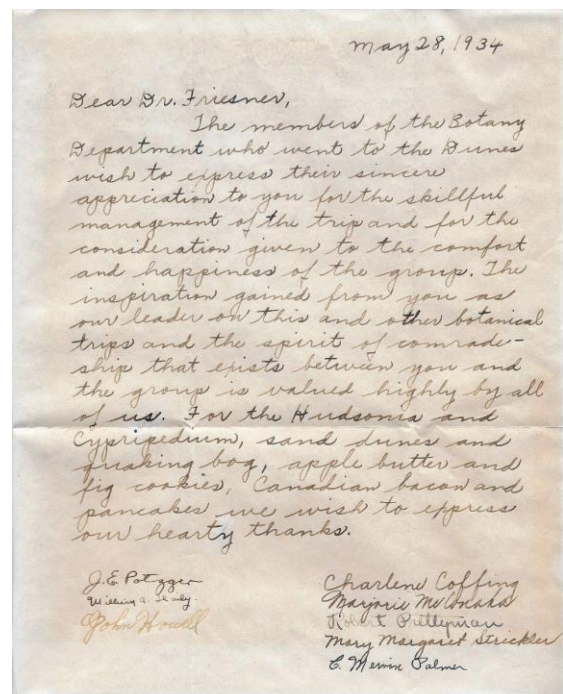 May 28, 1934
Dear Dr. Friesner,
The members of the Botany
Department who went to the Dunes
wish to express their sincere
appreciation to you for the skillful
management of the trip and for the
consideration given to the comfort
and happiness of the group. The
inspiration gained from you as
our leader on this and other botanical
trips and the spirit of comrade-
ship that exists between you and
the group is valued highly by all
of us. For the Hudsonia and
Cypripedium, sand dunes and
quaking bog, apple butter and
fig cookies, Canadian bacon and
pancakes we wish to express
our hearty thanks.
J.E. Potzger
William A.
John Howell
Charlene Coffing
Marjorie
Robert Prettyman
Mary Margaret Strickler
C. Mervin Palmer